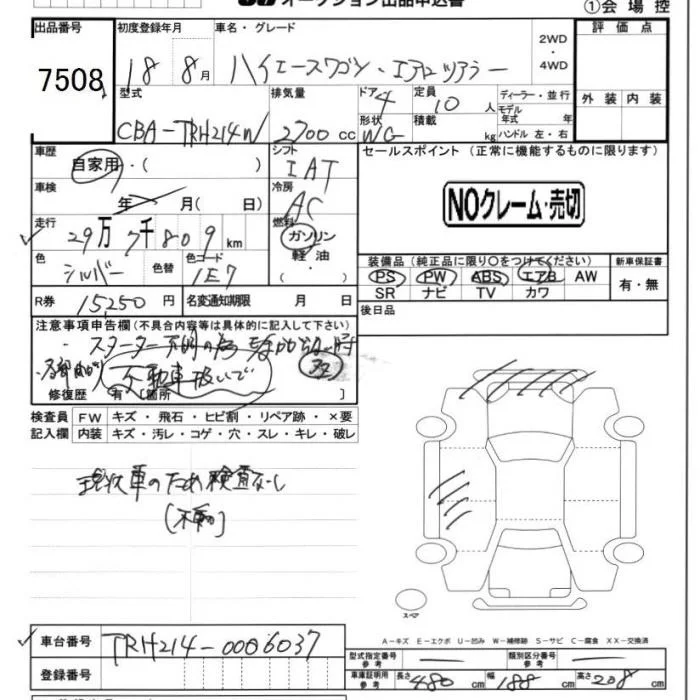 オークション出品申込書
①会場控
出品番号 初度登録年月 車名・グレード 2WD・4WD 評価点
7508
18 8月 ハイエースワゴン・エアロツアラー
型式 排気量 ドア 定員 ディーラー・並行 外装 内装
4 10人 モデル年式 年式
CBA-TRH214W 2700cc 形状 WG 積載 kg ハンドル 左・右
車歴 シフト セールスポイント (正常に機能するものに限ります)
自家用・( ) IAT
車検 冷房
年 月( 日) AC NOクレーム・売切
走行 燃料
29万7千809km ガソリン
色 色替 色コード 軽油
シルバー 1E7 ( ・ )
装備品(純正品に限り○をつけてください) 新車保証書
PS PW ABS エアB AW 有・無
SR ナビ TV カワ
R券 15,250円 名変通知期限 月 日 後日品
注意事項申告欄(不具合内容等は具体的に記入して下さい)
スターター不明の為
不動車扱いで
修復歴 有[箇所 ]
検査員 FW キズ・飛石・ヒビ割・リペア跡・×要
記入欄 内装 キズ・汚レ・コゲ・穴・スレ・キレ・破レ
現状車のため検査なし
(不動)
スペア
A-キズ E-エクボ U-凹み W-補修跡 S-サビ C-腐食 XX-交換済
車台番号 TRH214-0006037
型式指定番号 参考 類別区分番号 参考
登録番号 車庫証明用 参考 長さ 480cm 幅 188cm 高さ 208cm